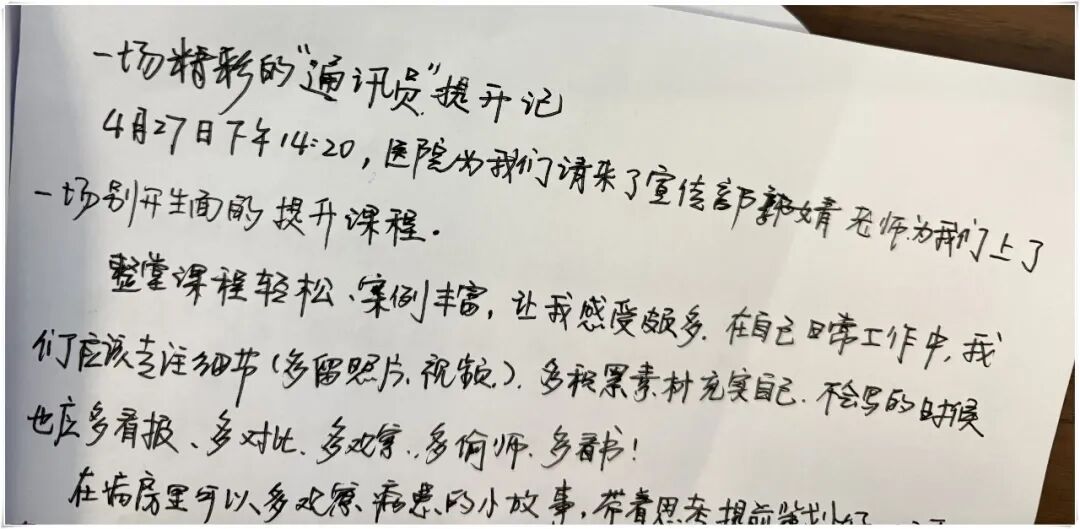 一场精彩的"通讯员"提升记
4月27日下午14:20，医院为我们请来了宣传部郭婧老师为我们上了
一场别开生面的提升课程.
整堂课程轻松、案例丰富，让我感受颇多.在自己日常工作中,我
们应该专注细节(多留照片、视频.).多积累素材充实自己.不会写的时候
也应多看报、多对比、多观察、多偷师、多看书!
在病房里可以多观察病患的小故事,带着思考提前策划好